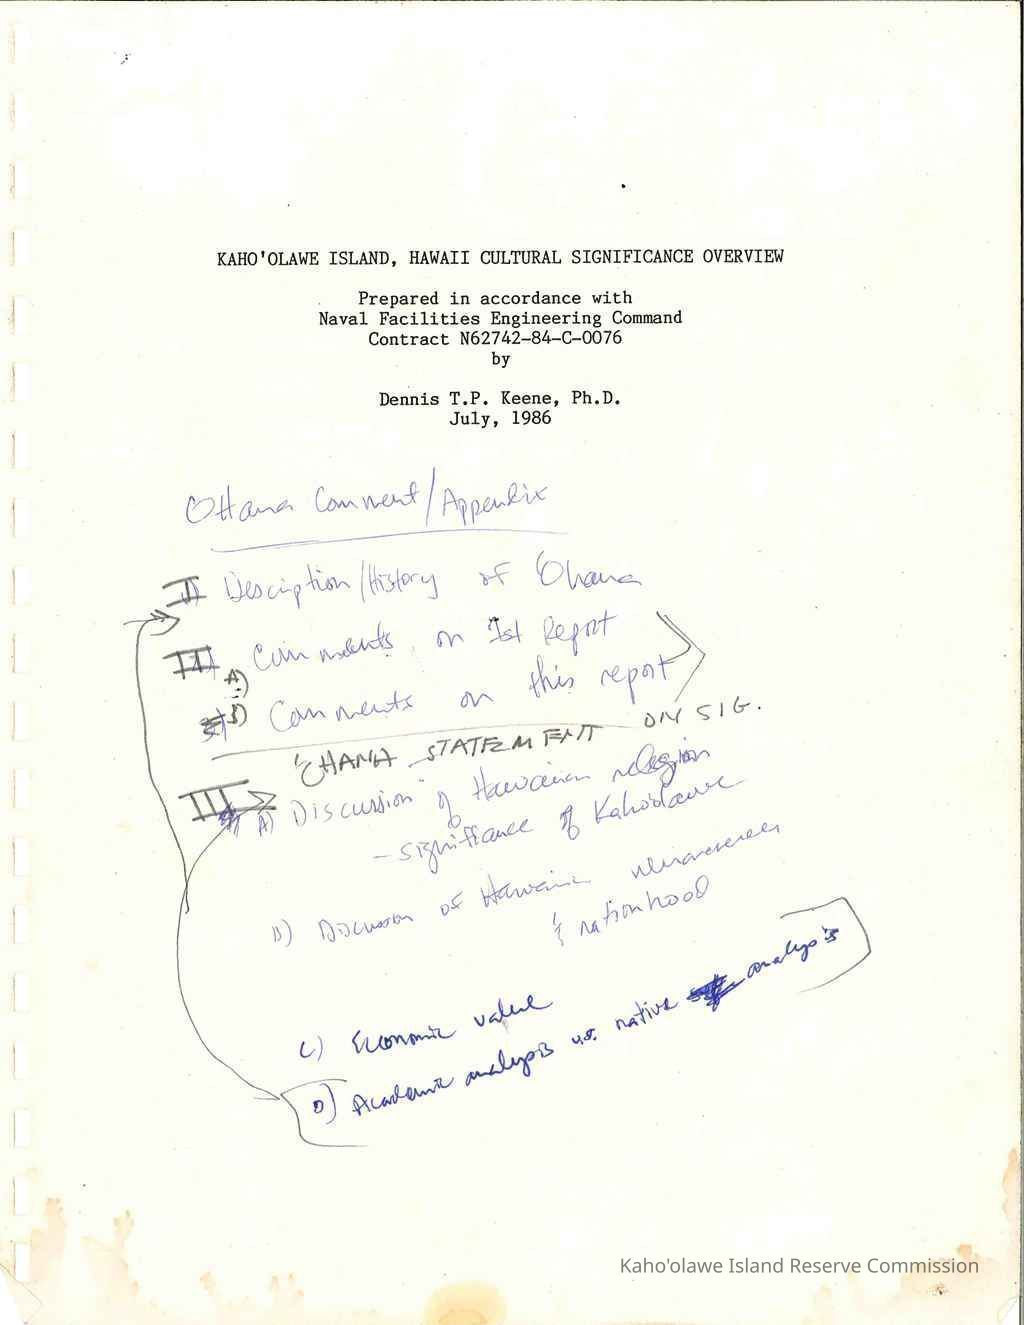 KAHO'OLAWE ISLAND, HAWAII CULTURAL SIGNIFICANCE OVERVIEW
Prepared in accordance with
Naval Facilities Engineering Command
Contract N62742-84-C-0076
by
Dennis T.P. Keene, Ph.D.
July, 1986
Ohana Comment/Appendix
I Description/History of 'Ohana
II Comments on 1st Report
A)
B) Comments on this report
'OHANA STATEMENT ON SIG.
III A) Discussion of Hawaiian religion
- significance of Kaho'olawe
B) Discussion of Hawaiian
& nationhood
C) Economic value
D) Academic analysis vs. native analysis
Kaho'olawe Island Reserve Commission